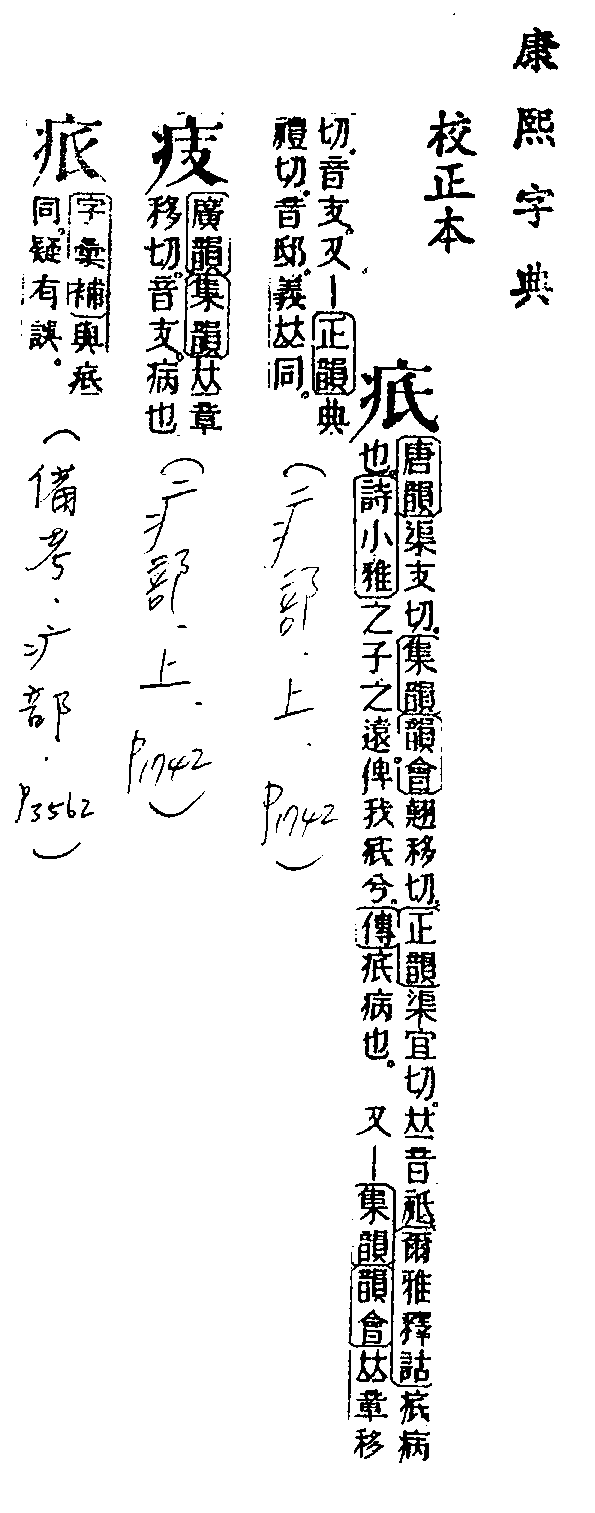 康熙字典
校正本
疧
唐韻渠支切。集韻韻會翹移切。正韻渠宜切。𠀤音祇。爾雅釋詁疧病
也。詩小雅之子之遠。俾我疧兮。傳疧病也。 又丨集韻韻會𠀤章移
切。音支。又丨正韻典
禮切。音邸。義𠀤同。
(二疒部.上.P1742)
㽻
廣韻集韻𠀤章
移切。音支。病也
(二疒部.上.P1742)
字彙補與疧
同。疑有誤。
(備考.疒部.P3562)